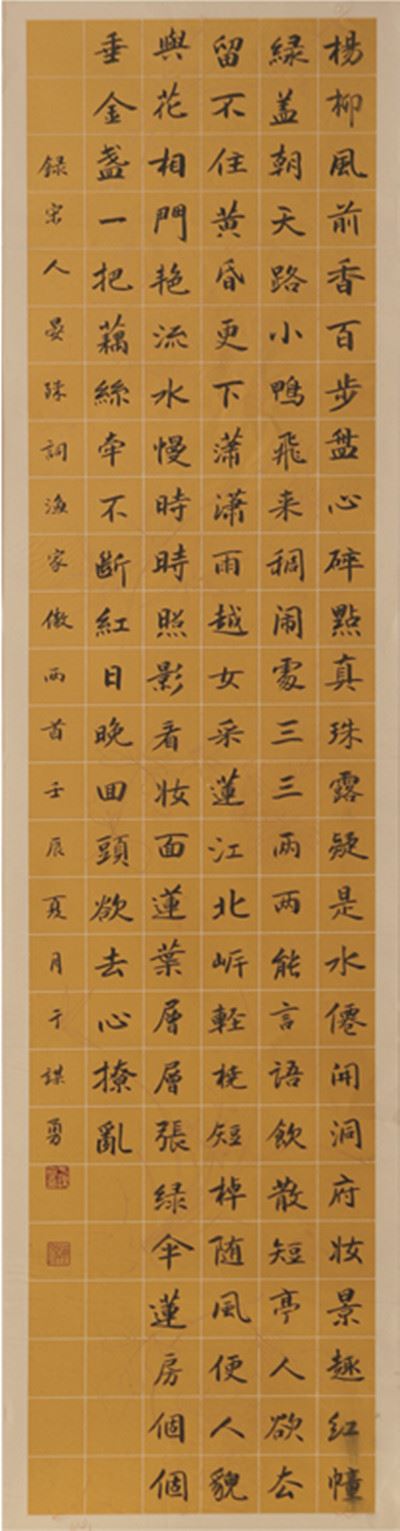 楊柳風前香百步盤心碎點真珠露疑是水僊開洞府妝景趣紅幢
緑盖朝天路小鴨飛来稠闹處三三兩兩能言語飲散短亭人欲去
留不住黄昏更下潇潇雨越女采蓮江北岍軽桡短棹随風便人貌
與花相鬥艳流水慢時時照影看妆面蓮葉層層張緑伞蓮房個個
垂金盏一把藕絲牵不斷紅日晚回頭欲去心撩亂
録宋人晏殊詞漁家傲兩首壬辰夏月于謀勇